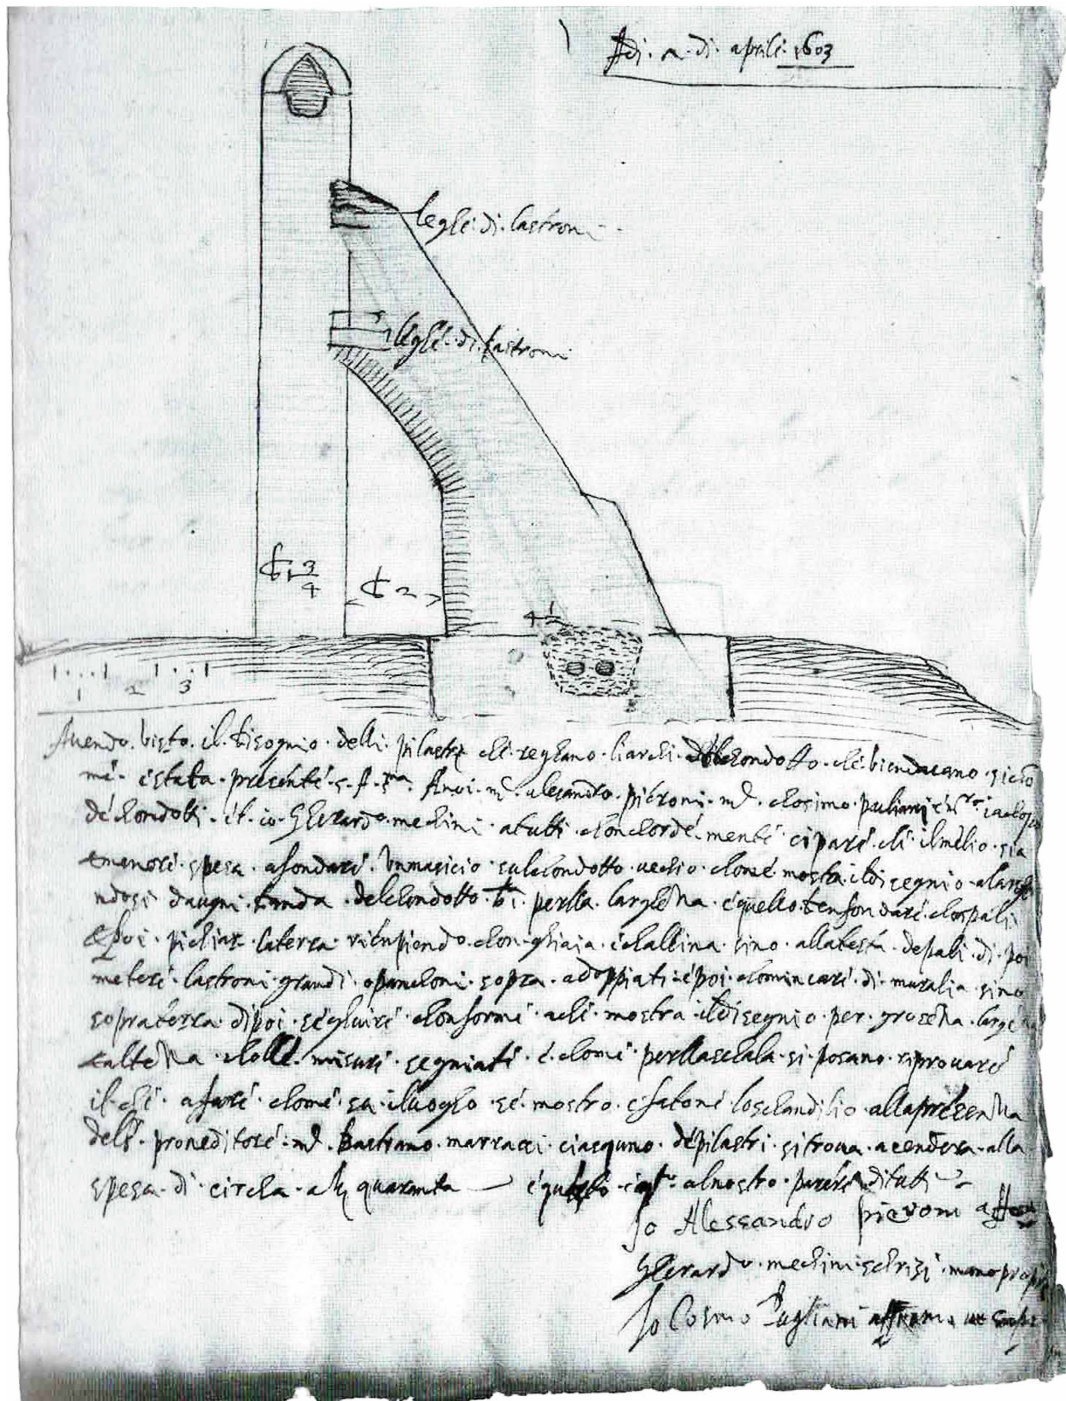 Adi · 2 · di · aprile · 1603
legle · di · lastroni
legle · di · lastroni
1 3/4
2
4 1/2
1 2 3
Avendo · visto · il · disognio · delli · pilastri che · reghano · li archi · del chondotto · che ·
me · estata · presente · S · A · S · ma · Noi · m · alesandro · pieroni · m · chosimo · puliani
de chondotti · et · io · Gherardo · mechini · a tutti · chonchorde · mente · ci pare · che · il melio · sia
e menore · spesa · a fondare · un masicio · sul chondotto · vechio · chome · mostra · il disegnio · a largha
ndosi d augni · banda · del chondotto · per lla · larghezza · e quello · ben fondare · cho pali
e poi · pichiar · la terra · riempiendo · chon · ghiaia · e chalcina · sino · alla testa · de pali · di · poi
metere · lastroni · grandi · o panchoni · sopra · adoppiati · e poi · chominciare · di · muralia · sino
sopra terra di poi · seghuire · chonforme · a che · mostra · il disegnio · per · grosezza · largezza
e altezza · cholle · misure · segniate · e · chome · per lla schala · si · posano · riprovare
il · che · a fare · chome · sa · il luogho · se · mostro · e fatone · lo schandilio · alla presenzza
del · proveditore · m · Bastiano · marracci · ciaschuno · de pilastri · si trova · a cendera · alla
spesa · di · circha · quaranta — e questo · al nostro · parere di tutti
Io Alessandro pieroni affermo
Gherardo · mechini · schrisi · mano propria
Io Cosimo Pugliani affermo